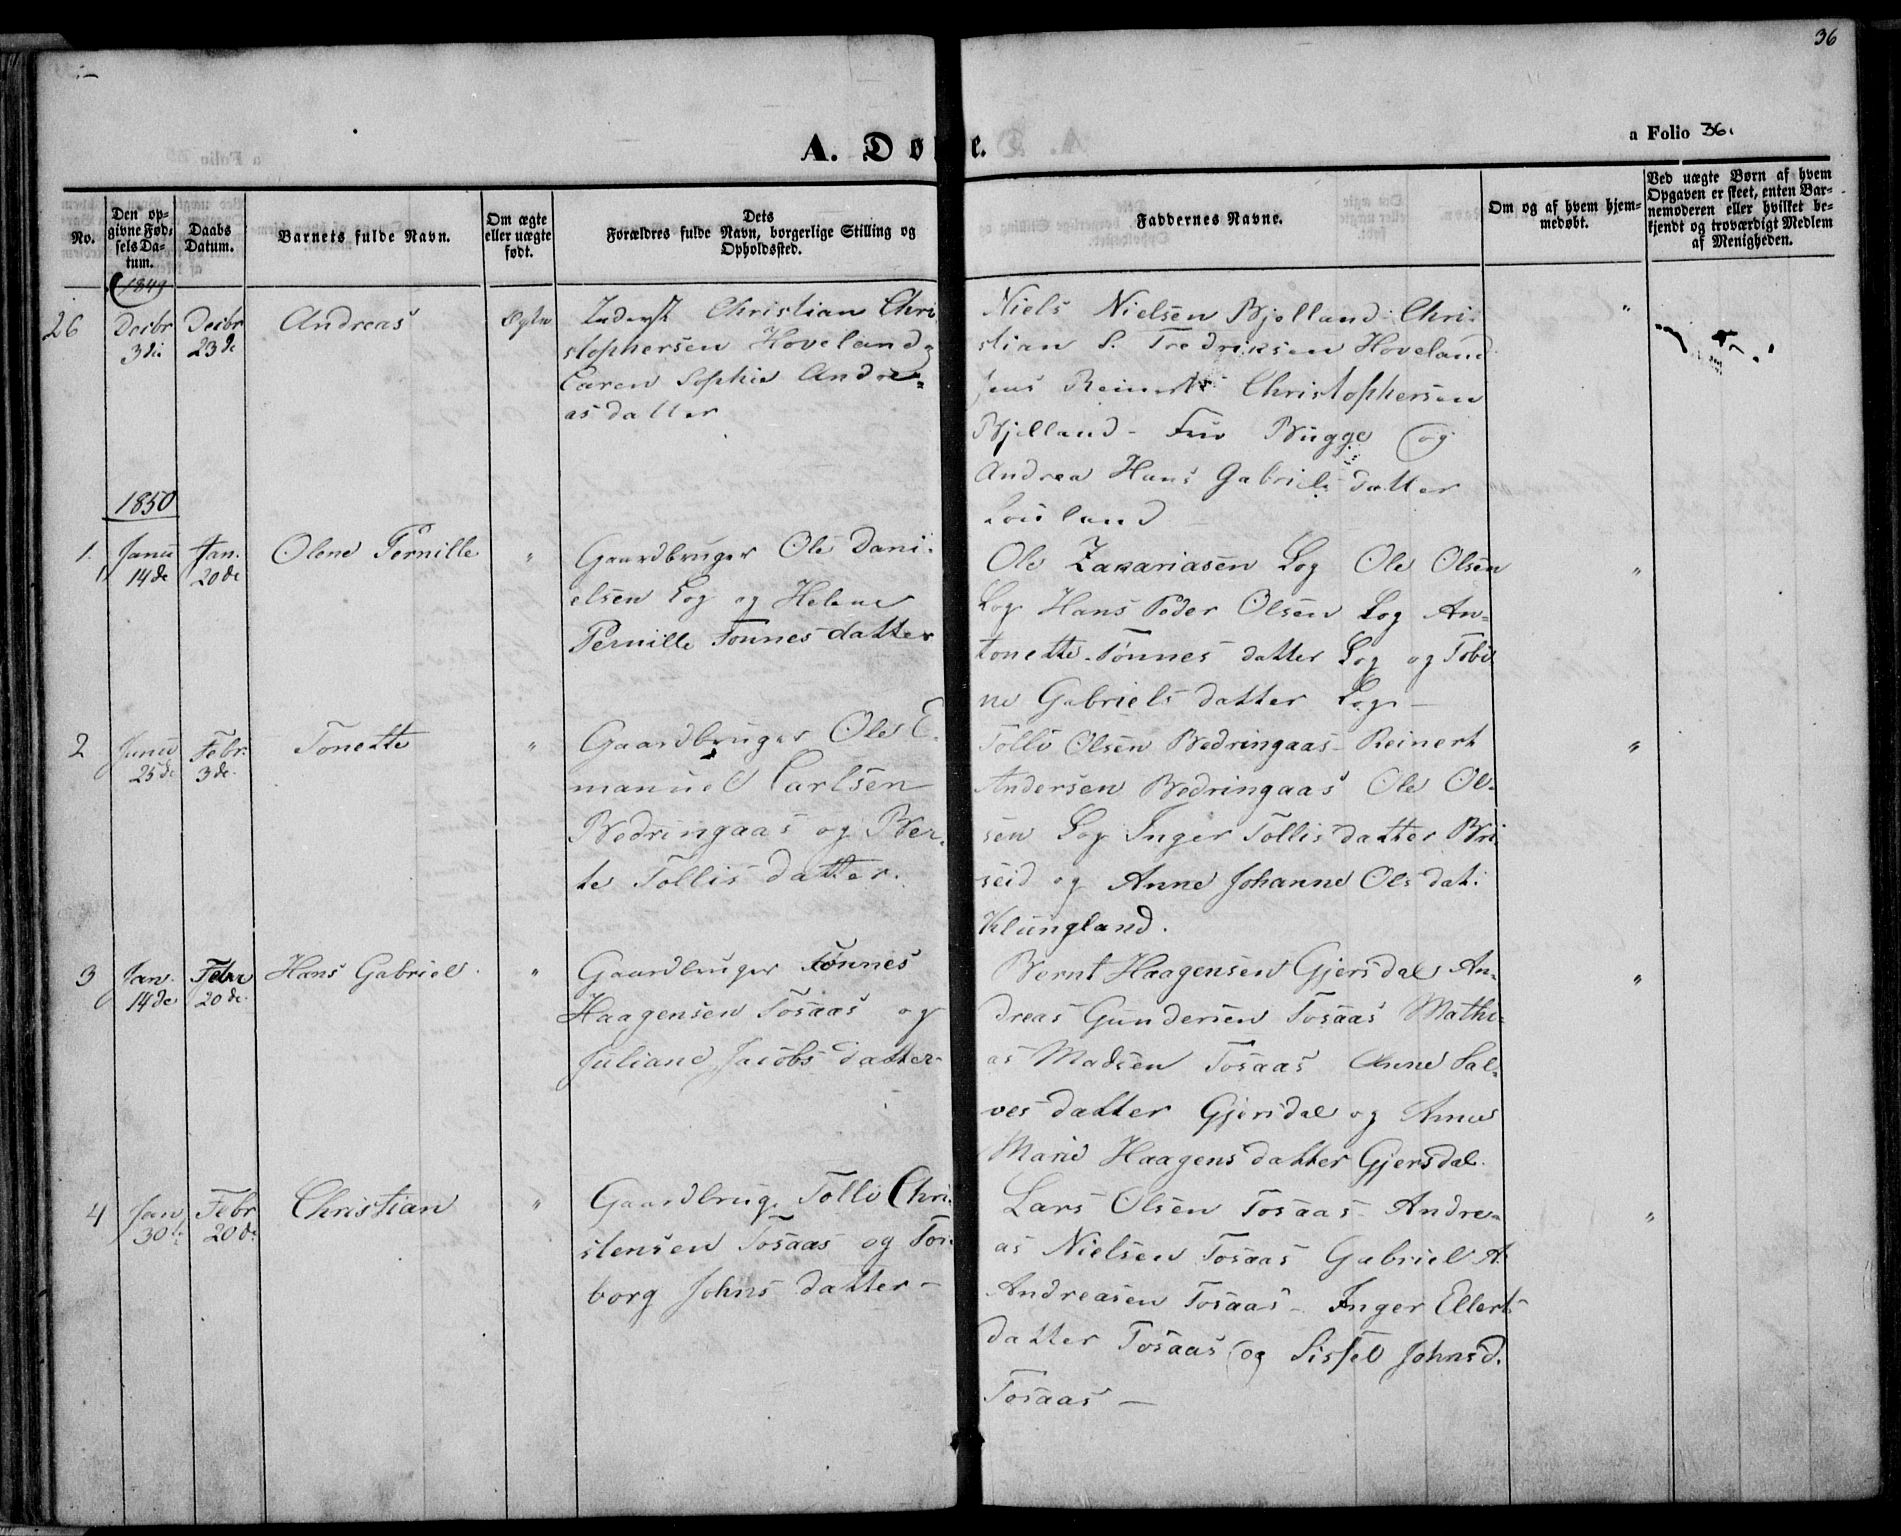 36
A. Døbte.
a Folio 36.
No.
Den opgivne Fødselsdatum.
Daabs Datum.
Barnets fulde Navn.
Om ægte eller uægte født.
Dets Forældres fulde Navn, borgerlige Stilling og Opholdssted.
Faddernes Navne.
Om og af hvem hjemmedøbt.
Ved uægte Børn af hvem Opgaven er skeet, enten Barnemoderen eller hvilket bekjendt og troværdigt Medlem af Menigheden.
1849
26 Decbr 3die Decbr 23de Andreas Ægte
Inderst Christian Chri
stophersen Hoveland og
Caren Sophie Andre=
asdatter
Niels Nielsen Bjelland. Chri-
stian S. Fredriksen Hoveland
Jens Reinert Christophersen
Bjelland - Fru Bugge og
Andrea Hans Gabriels datter
Louland
"
1850
1. Janu 14de Jan. 20de Olene Pernille "
Gaardbruger Ole Dani-
elsen Log og Helene
Pernille Tønnesdatter
Ole Zakariasen Log Ole Olsen
Log Hans Peder Olsen Log An=
tonette Tønnes datter Log og Tobi
ne Gabriels datter Log -
"
2 Janu 25de Febr. 3de. Tonette "
Gaardbruger Ole E.
manuel Carlsen
Bedringaas og Ber-
te Tollis datter.
Tolli Olsen Bedringaas Reinert
Andersen Bedringaas Ole Ol-
sen Log Inger Tollisdatter Bri
seid og Anne Johanne Ols dat.
Klungland.
"
3 Jan. 14de Febr 20de. Hans Gabriel. "
Gaardbruger Tønnes
Haagensen Tosaas og
Juliane Jacobs datter-
Bernt Haagensen Gjersdal An-
dreas Gundersen Tosaas Mathi-
as Madsen Tosaas Anne Sal-
ves datter Gjersdal og Anne
Marie Haagens datter Gjersdal.
"
4 Jan 30te Febr 20de Christian "
Gaardbrug. Tolli Chri-
stensen Tosaas og Tor-
borg Johns datter -
Lars Olsen Tosaas Andre=
as Nielsen Tosaas Gabriel A.
Andreasen Tosaas - Inger Ellert
datter Tosaas og Sissel Johnsd.
Tosaas -
"